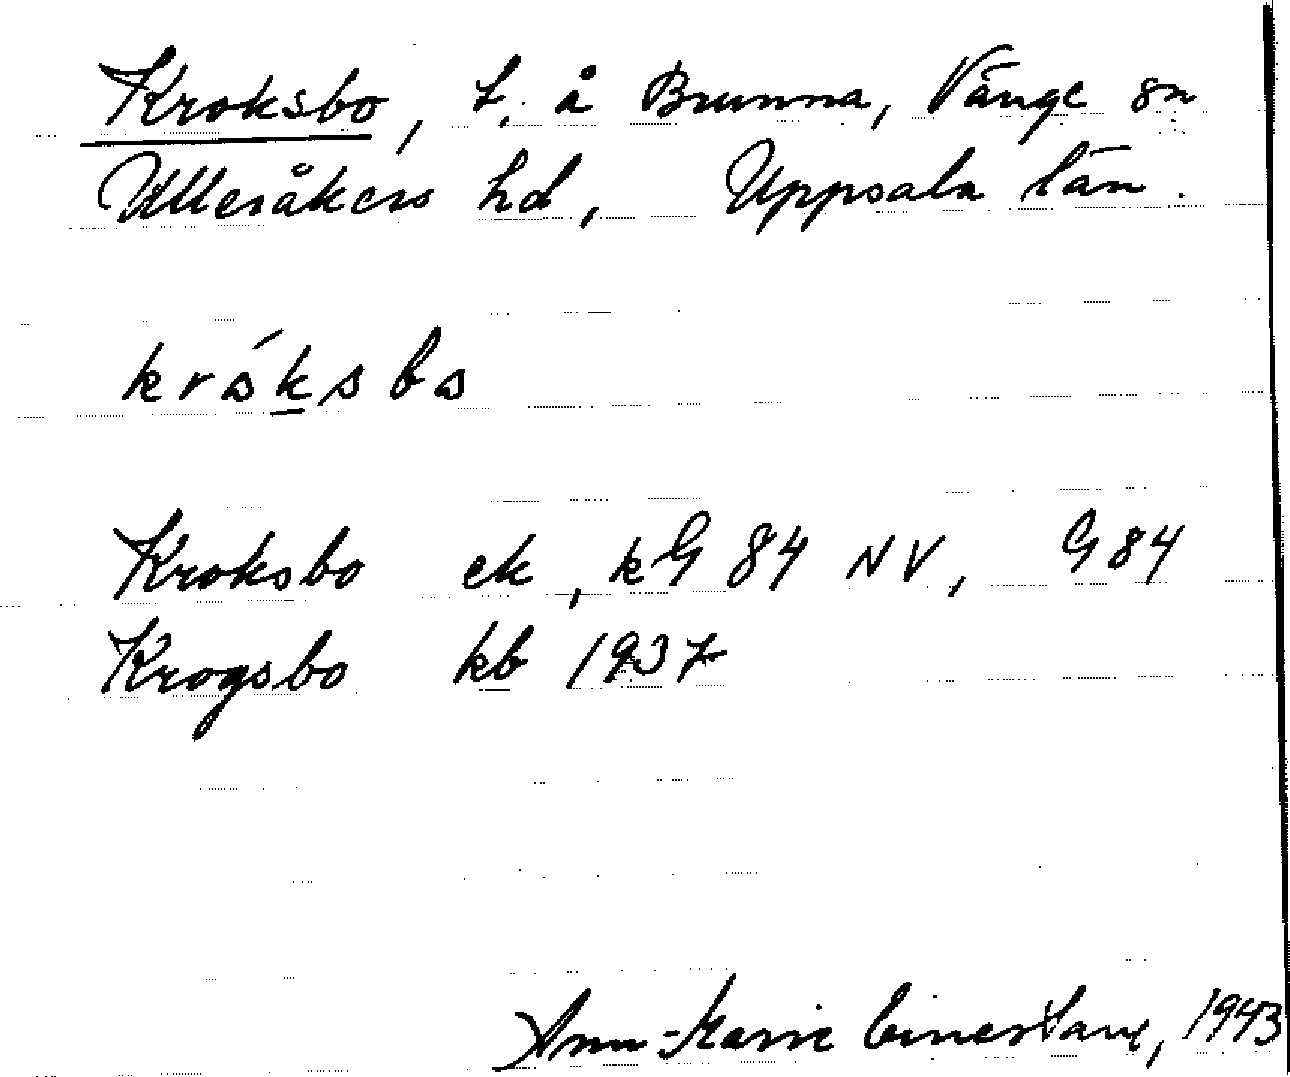 Kroksbo, t. å Brunna, Vänge sn
Ulleråkers hd, Uppsala län.
kráksba
Kroksbo ek, kG 84 NV, G 84
Krogsbo kb 1937
Ann-Marie 1943